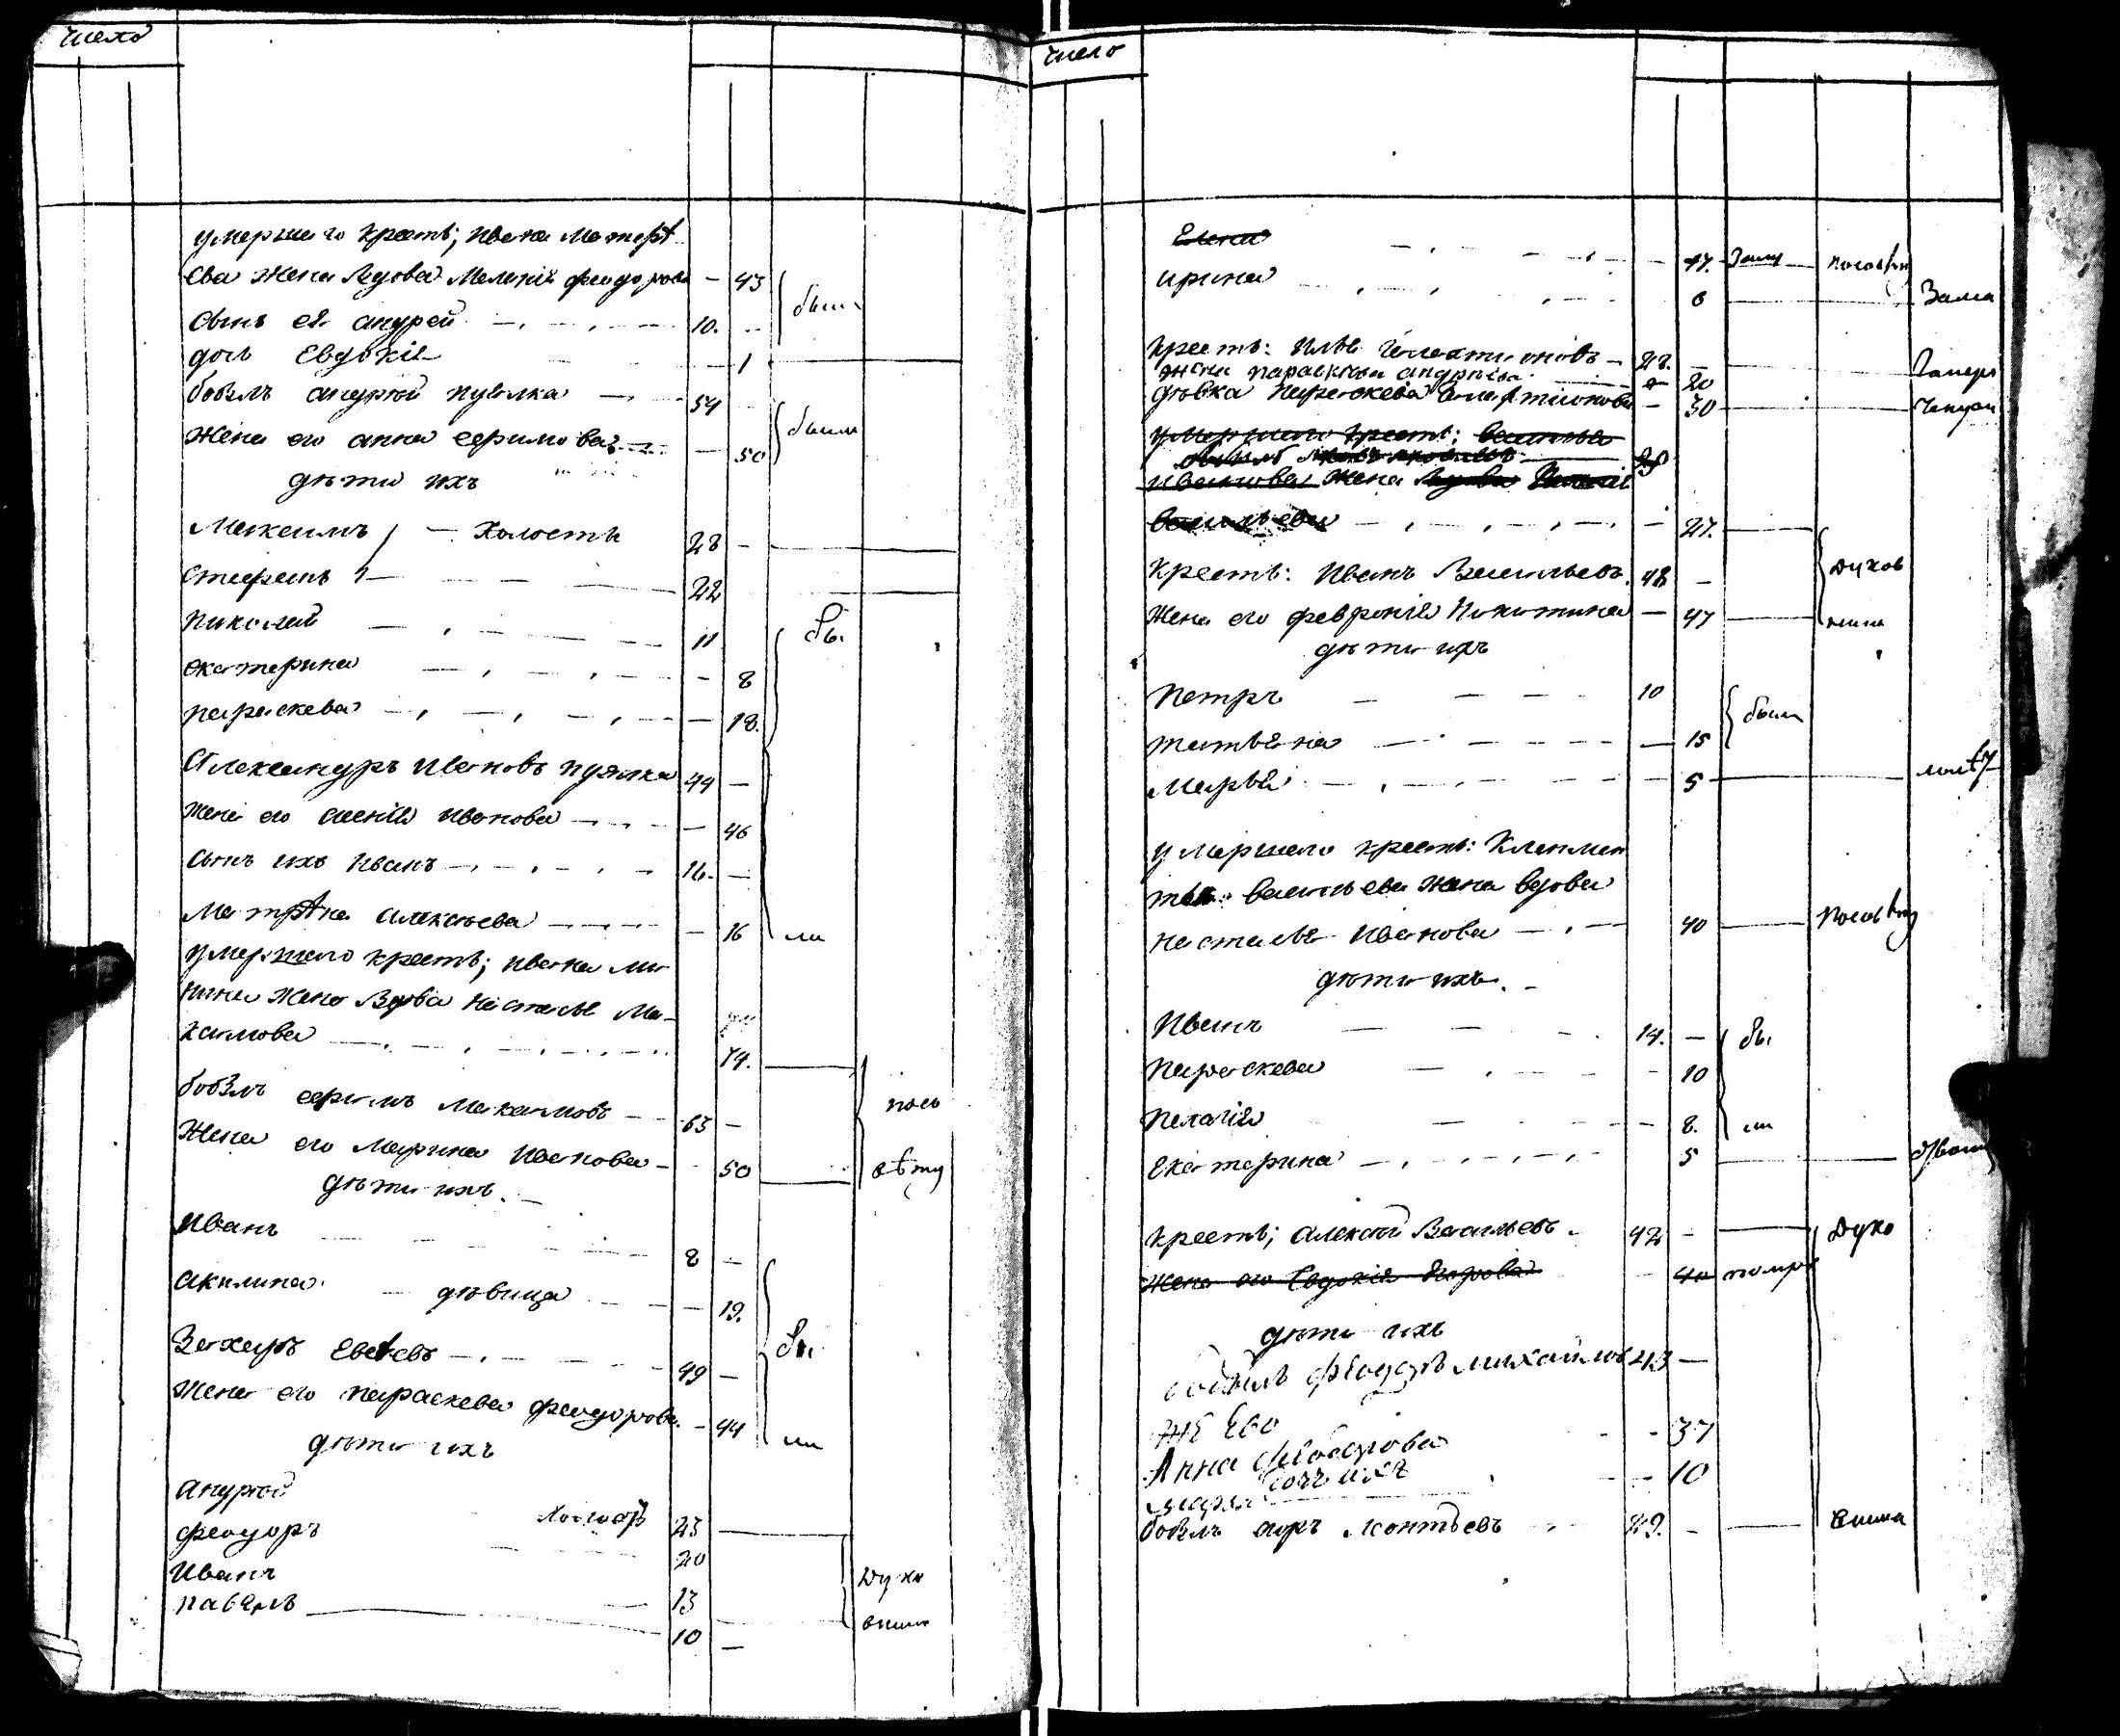 число
умершаго крестъ; ивана матфѣ
ева жена вдова Меланія феодорова — 43 были
сынъ ея андрей 10.
дочь Евдокія — 1
бобыль андрей пуялка 54 были
жена его анна ефимова — 50
дѣти ихъ
Максимъ — холостъ 28 —
Стефанъ 22
Николай 11 бы
екатерина — 8
параскева — 18.
Александръ Ивановъ пуялка 44 —
жена его ксенія иванова — 46
сынъ ихъ Иванъ 16. —
Матрѣна алексѣева — 16 ли
умершаго крестъ; ивана ми
нина жена вдова настасья Ма-
ксимова 74.
бобыль ефимъ Максимовъ 63 — посѣ
Жена его Марина Иванова — 50 вѣту
дѣти ихъ.
Иванъ 8 —
Акилина дѣвица — 19.
Захаръ Евсѣевъ 49 — бы
жена его параскева феодорова — 44 ли
дѣти ихъ
андрей холостъ 23
феодоръ 20
Иванъ 13 духо
павелъ 10 — вника
число
Елена 17.
ирина 6 Зама
крестъ: Илья 28. —
жена параскева андреева 20
дѣвка параскева — 30
умершаго крестъ;
жена
27.
крестъ: Иванъ Васильевъ 48 — духов
жена его февронія Никитина — 47 ника
дѣти ихъ
Петръ 10 были
татьяна — 15
Марья — 5
умершаго крестъ: Клемен
тья васильева жена вдова
настасья Иванова 40
дѣти ихъ.
Иванъ 14. — бы
Параскева — 10
Пелагія — 8. ли
Екатерина 5
крестъ; алексѣй Васильевъ 42 — духо
жена его Евдокія 40 помре
дѣти ихъ
бобыль феодоръ михайловъ 43 —
же его - 37
Анна феодорова
дочь ихъ - 10
марья
бобыль карпъ леонтьевъ 49. — вника